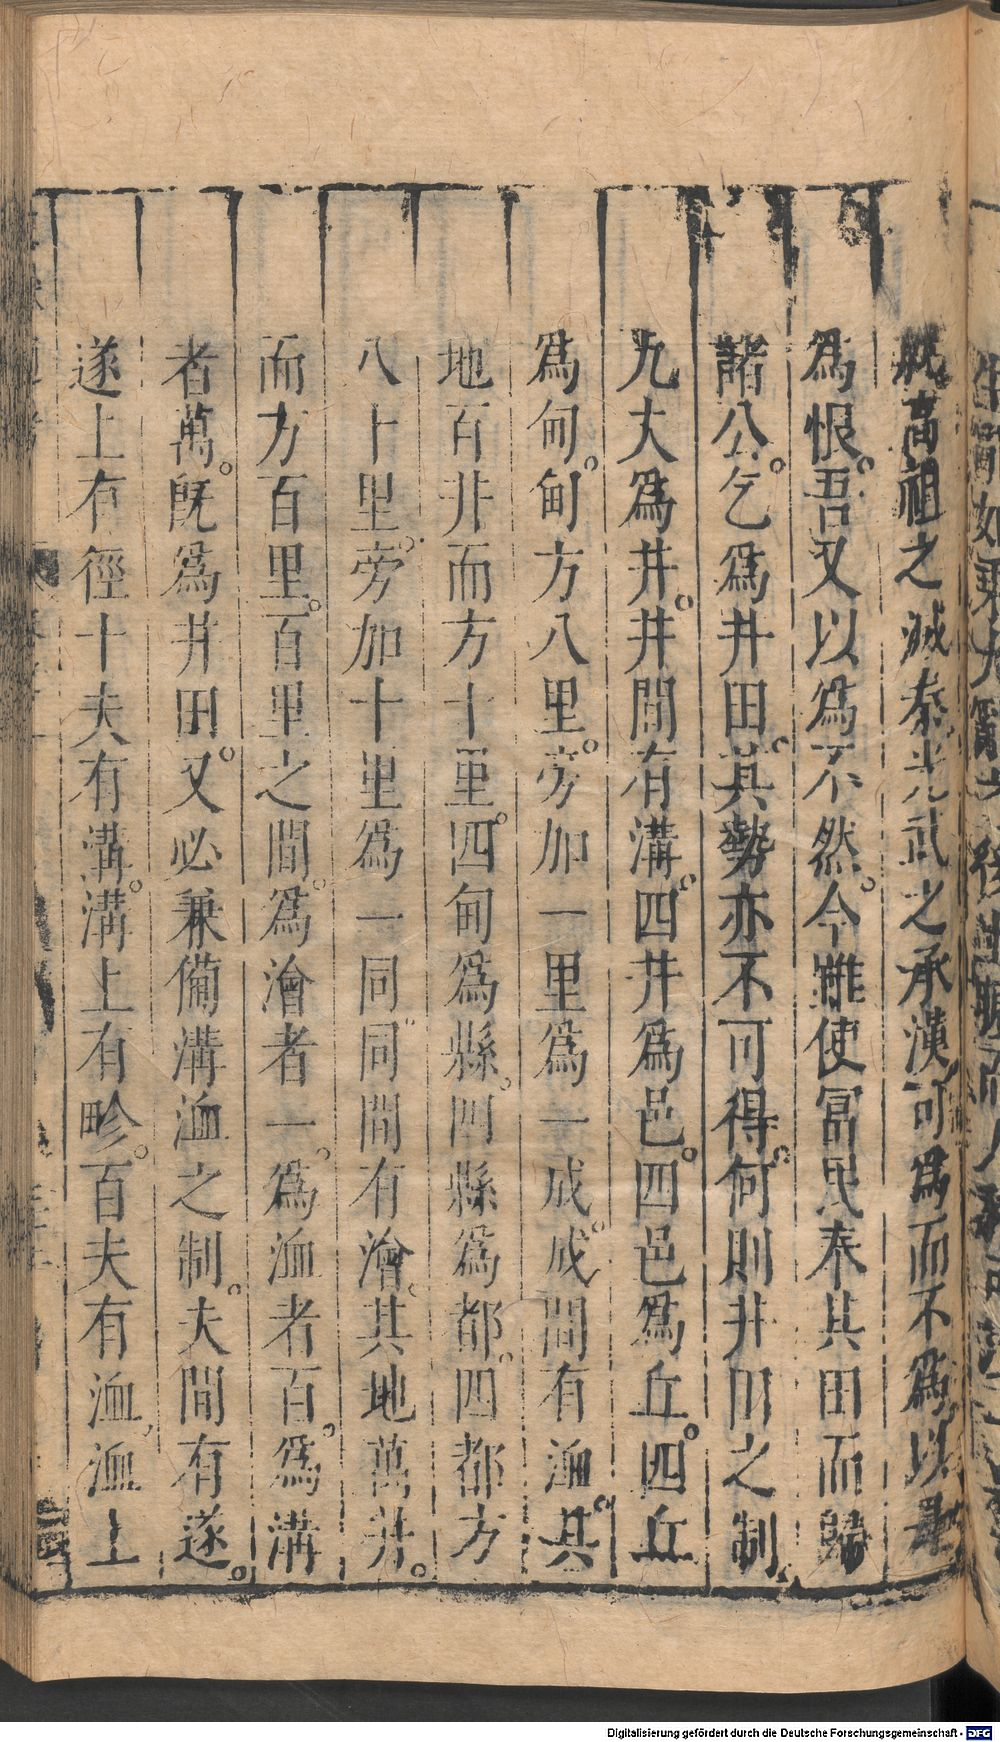 祝高祖之滅秦光武之承漢可為而不為以是
為恨。吾又以為不然。今雖使富民奉其田而歸
諸公。乞為井田。其勢亦不可得。何則井田之制
九夫為井。井間有溝。四井為邑。四邑為丘。四丘
為甸。甸方八里。旁加一里為一成。成間有洫。其
地百井而方十里。四甸為縣。四縣為都。四都方
八十里。旁加十里為一同。同間有澮。其地萬井。
而方百里。百里之間。為澮者一。為洫者百。為溝
者萬。既為井田。又必兼備溝洫之制。夫間有遂。
遂上有徑十夫有溝。溝上有畛。百夫有洫，洫上
Digitalisierung gefördert durch die Deutsche Forschungsgemeinschaft - DFG